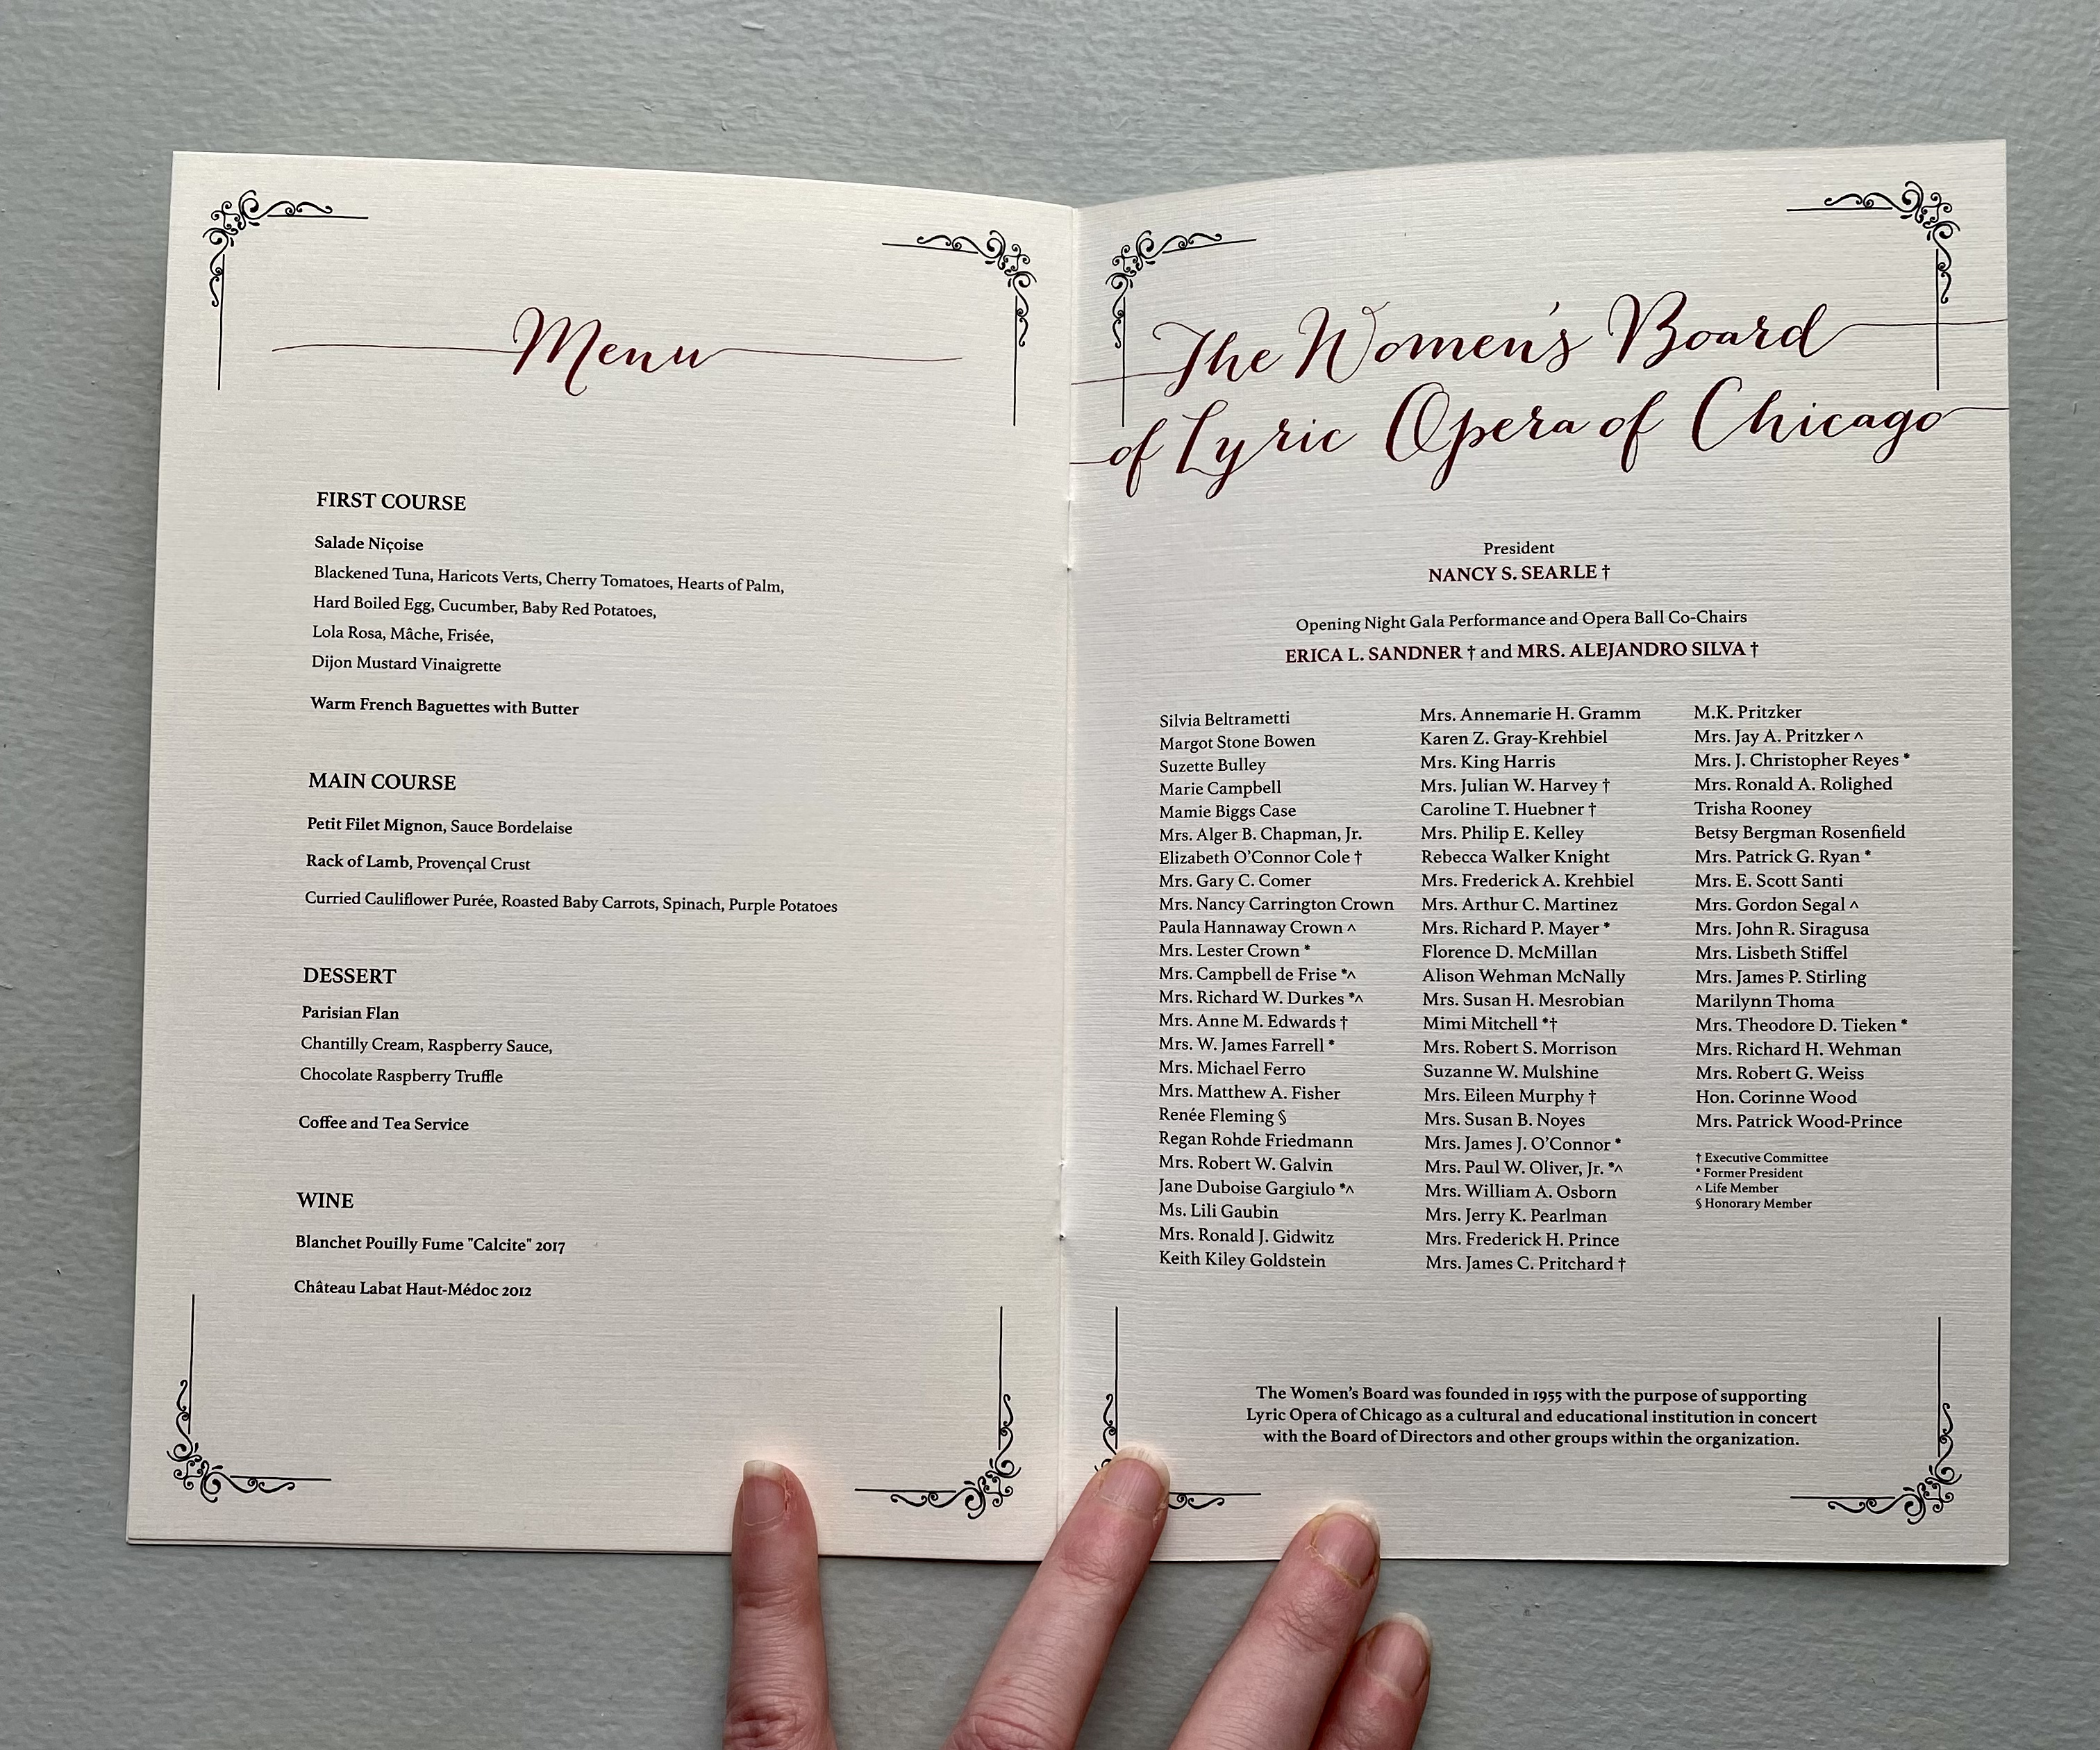 Menu
FIRST COURSE
Salade Niçoise
Blackened Tuna, Haricots Verts, Cherry Tomatoes, Hearts of Palm,
Hard Boiled Egg, Cucumber, Baby Red Potatoes,
Lola Rosa, Mâche, Frisée,
Dijon Mustard Vinaigrette
Warm French Baguettes with Butter
MAIN COURSE
Petit Filet Mignon, Sauce Bordelaise
Rack of Lamb, Provençal Crust
Curried Cauliflower Purée, Roasted Baby Carrots, Spinach, Purple Potatoes
DESSERT
Parisian Flan
Chantilly Cream, Raspberry Sauce,
Chocolate Raspberry Truffle
Coffee and Tea Service
WINE
Blanchet Pouilly Fume "Calcite" 2017
Château Labat Haut-Médoc 2012
The Women's Board
of Lyric Opera of Chicago
President
NANCY S. SEARLE †
Opening Night Gala Performance and Opera Ball Co-Chairs
ERICA L. SANDNER † and MRS. ALEJANDRO SILVA †
Silvia Beltrametti
Margot Stone Bowen
Suzette Bulley
Marie Campbell
Mamie Biggs Case
Mrs. Alger B. Chapman, Jr.
Elizabeth O'Connor Cole †
Mrs. Gary C. Comer
Mrs. Nancy Carrington Crown
Paula Hannaway Crown ^
Mrs. Lester Crown *
Mrs. Campbell de Frise *^
Mrs. Richard W. Durkes *^
Mrs. Anne M. Edwards †
Mrs. W. James Farrell *
Mrs. Michael Ferro
Mrs. Matthew A. Fisher
Renée Fleming §
Regan Rohde Friedmann
Mrs. Robert W. Galvin
Jane Duboise Gargiulo *^
Ms. Lili Gaubin
Mrs. Ronald J. Gidwitz
Keith Kiley Goldstein
Mrs. Annemarie H. Gramm
Karen Z. Gray-Krehbiel
Mrs. King Harris
Mrs. Julian W. Harvey †
Caroline T. Huebner †
Mrs. Philip E. Kelley
Rebecca Walker Knight
Mrs. Frederick A. Krehbiel
Mrs. Arthur C. Martinez
Mrs. Richard P. Mayer *
Florence D. McMillan
Alison Wehman McNally
Mrs. Susan H. Mesrobian
Mimi Mitchell *†
Mrs. Robert S. Morrison
Suzanne W. Mulshine
Mrs. Eileen Murphy †
Mrs. Susan B. Noyes
Mrs. James J. O'Connor *
Mrs. Paul W. Oliver, Jr. *^
Mrs. William A. Osborn
Mrs. Jerry K. Pearlman
Mrs. Frederick H. Prince
Mrs. James C. Pritchard †
M.K. Pritzker
Mrs. Jay A. Pritzker ^
Mrs. J. Christopher Reyes *
Mrs. Ronald A. Rolighed
Trisha Rooney
Betsy Bergman Rosenfield
Mrs. Patrick G. Ryan *
Mrs. E. Scott Santi
Mrs. Gordon Segal ^
Mrs. John R. Siragusa
Mrs. Lisbeth Stiffel
Mrs. James P. Stirling
Marilynn Thoma
Mrs. Theodore D. Tieken *
Mrs. Richard H. Wehman
Mrs. Robert G. Weiss
Hon. Corinne Wood
Mrs. Patrick Wood-Prince
† Executive Committee
* Former President
^ Life Member
§ Honorary Member
The Women's Board was founded in 1955 with the purpose of supporting
Lyric Opera of Chicago as a cultural and educational institution in concert
with the Board of Directors and other groups within the organization.